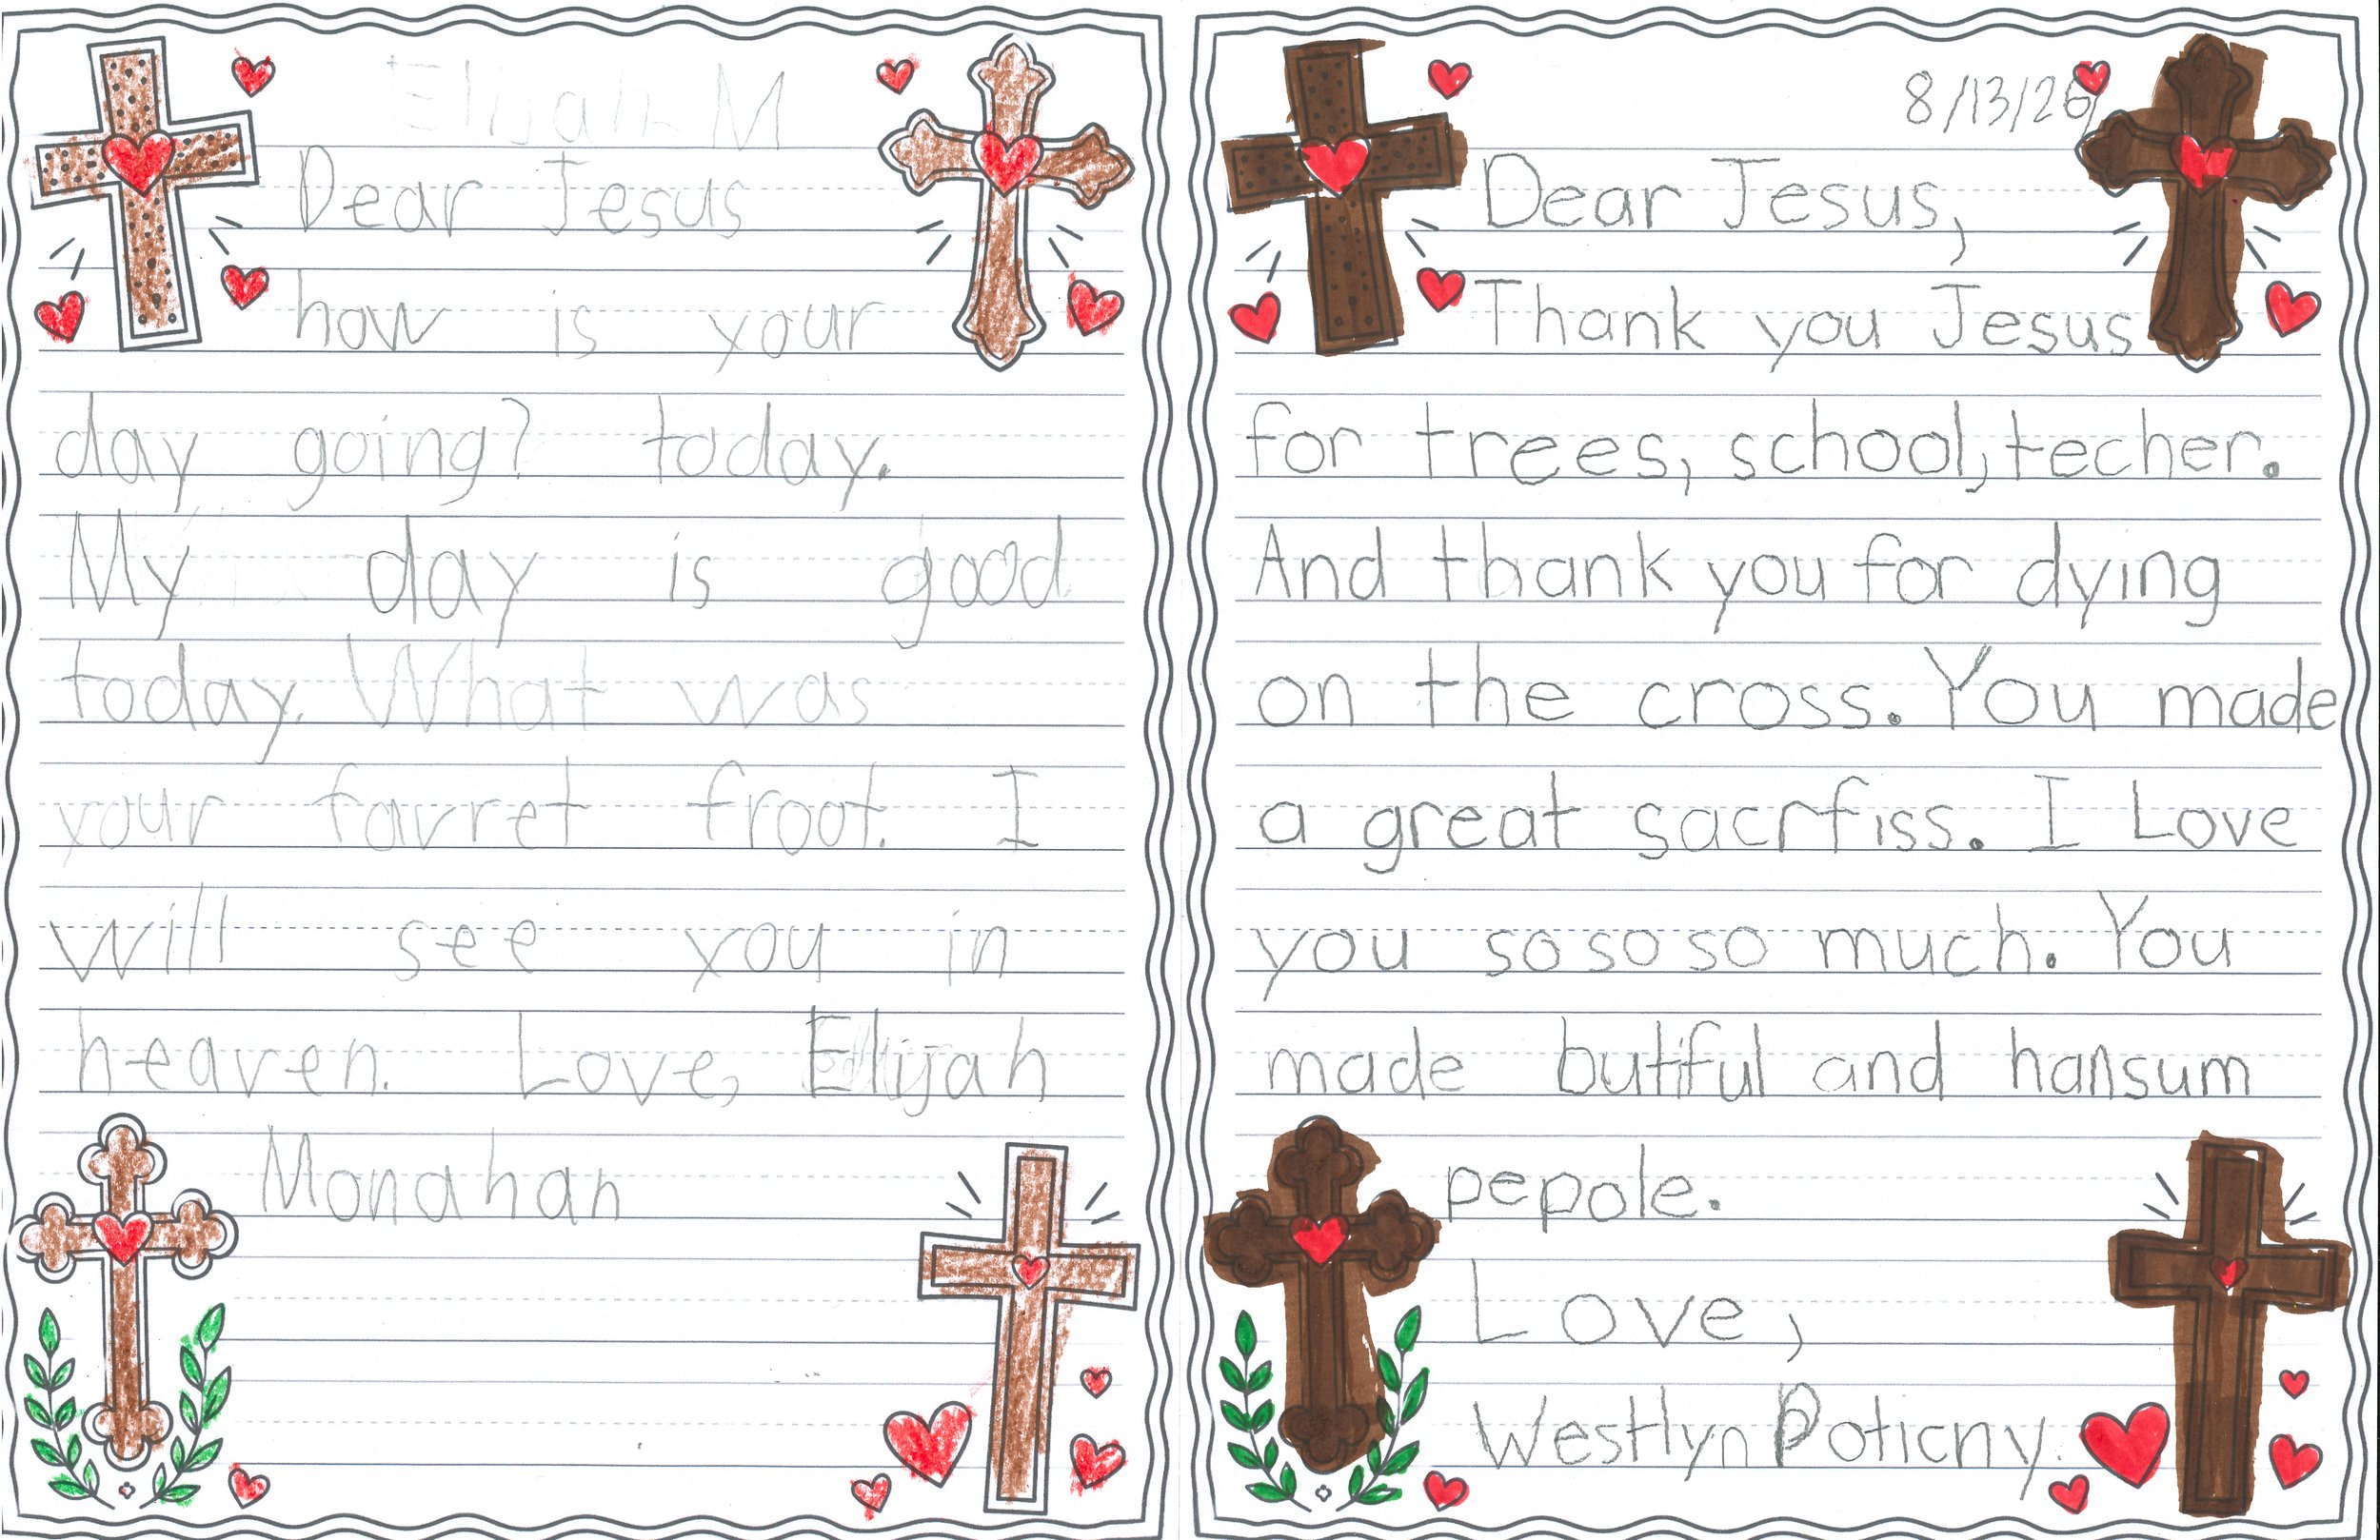 Elijah M
Dear Jesus
how is your
day going? today.
My day is good
today. What was
your favret froot. I
will see you in
heaven. Love, Elijah
Monahan
8/13/26
Dear Jesus,
Thank you Jesus
for trees, school, techer.
And thank you for dying
on the cross. You made
a great sacrfiss. I Love
you so so so much. You
made butiful and hansum
pepole.
Love,
Westlyn Poticny.